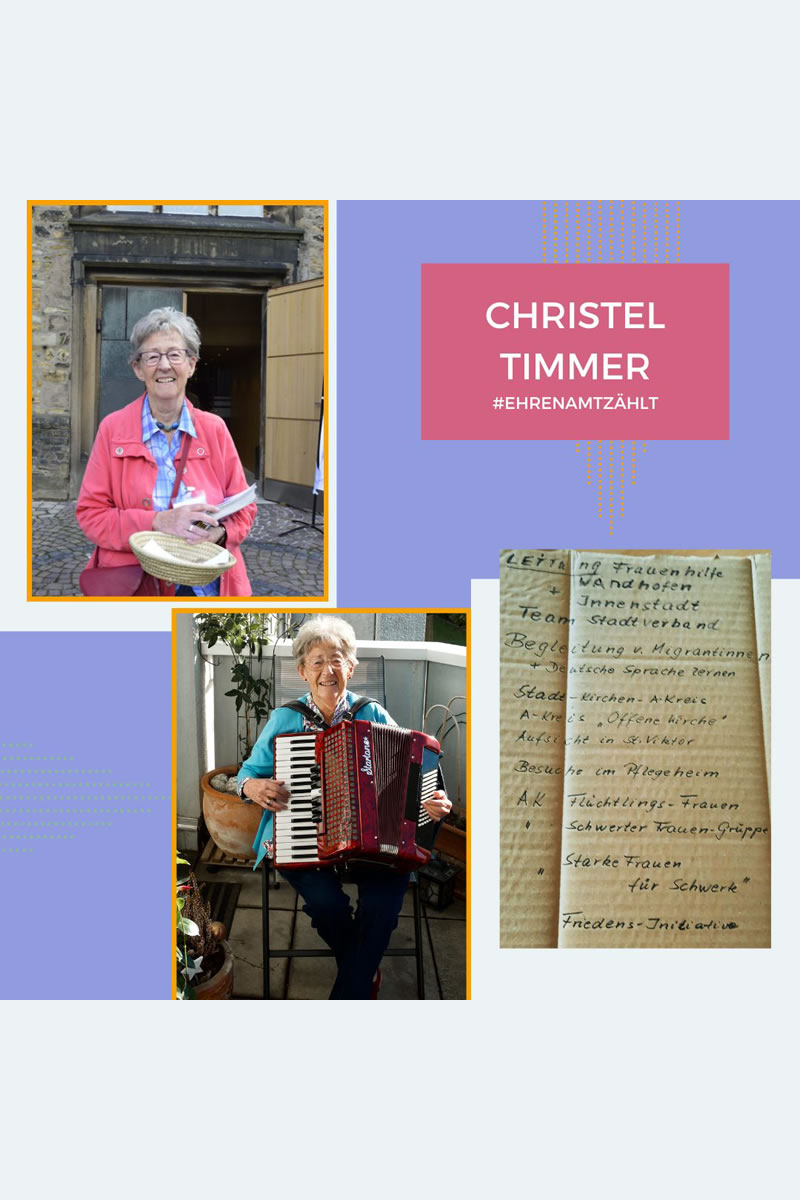 CHRISTEL
TIMMER
#EHRENAMTZÄHLT
LEITUNG Frauenhilfe
Wandhofen
+ Innenstadt
Team Stadtverband
Begleitung v. Migrantinnen
+ Deutsche Sprache lernen
Stadt-Kirchen-A.Kreis
A-Kreis „Offene Kirche"
Aufsicht in St. Viktor
Besuche im Pflegeheim
AK Flüchtlings-Frauen
" Schwerter Frauen-Gruppe
" Starke Frauen
für Schwerte"
Friedens-Initiative